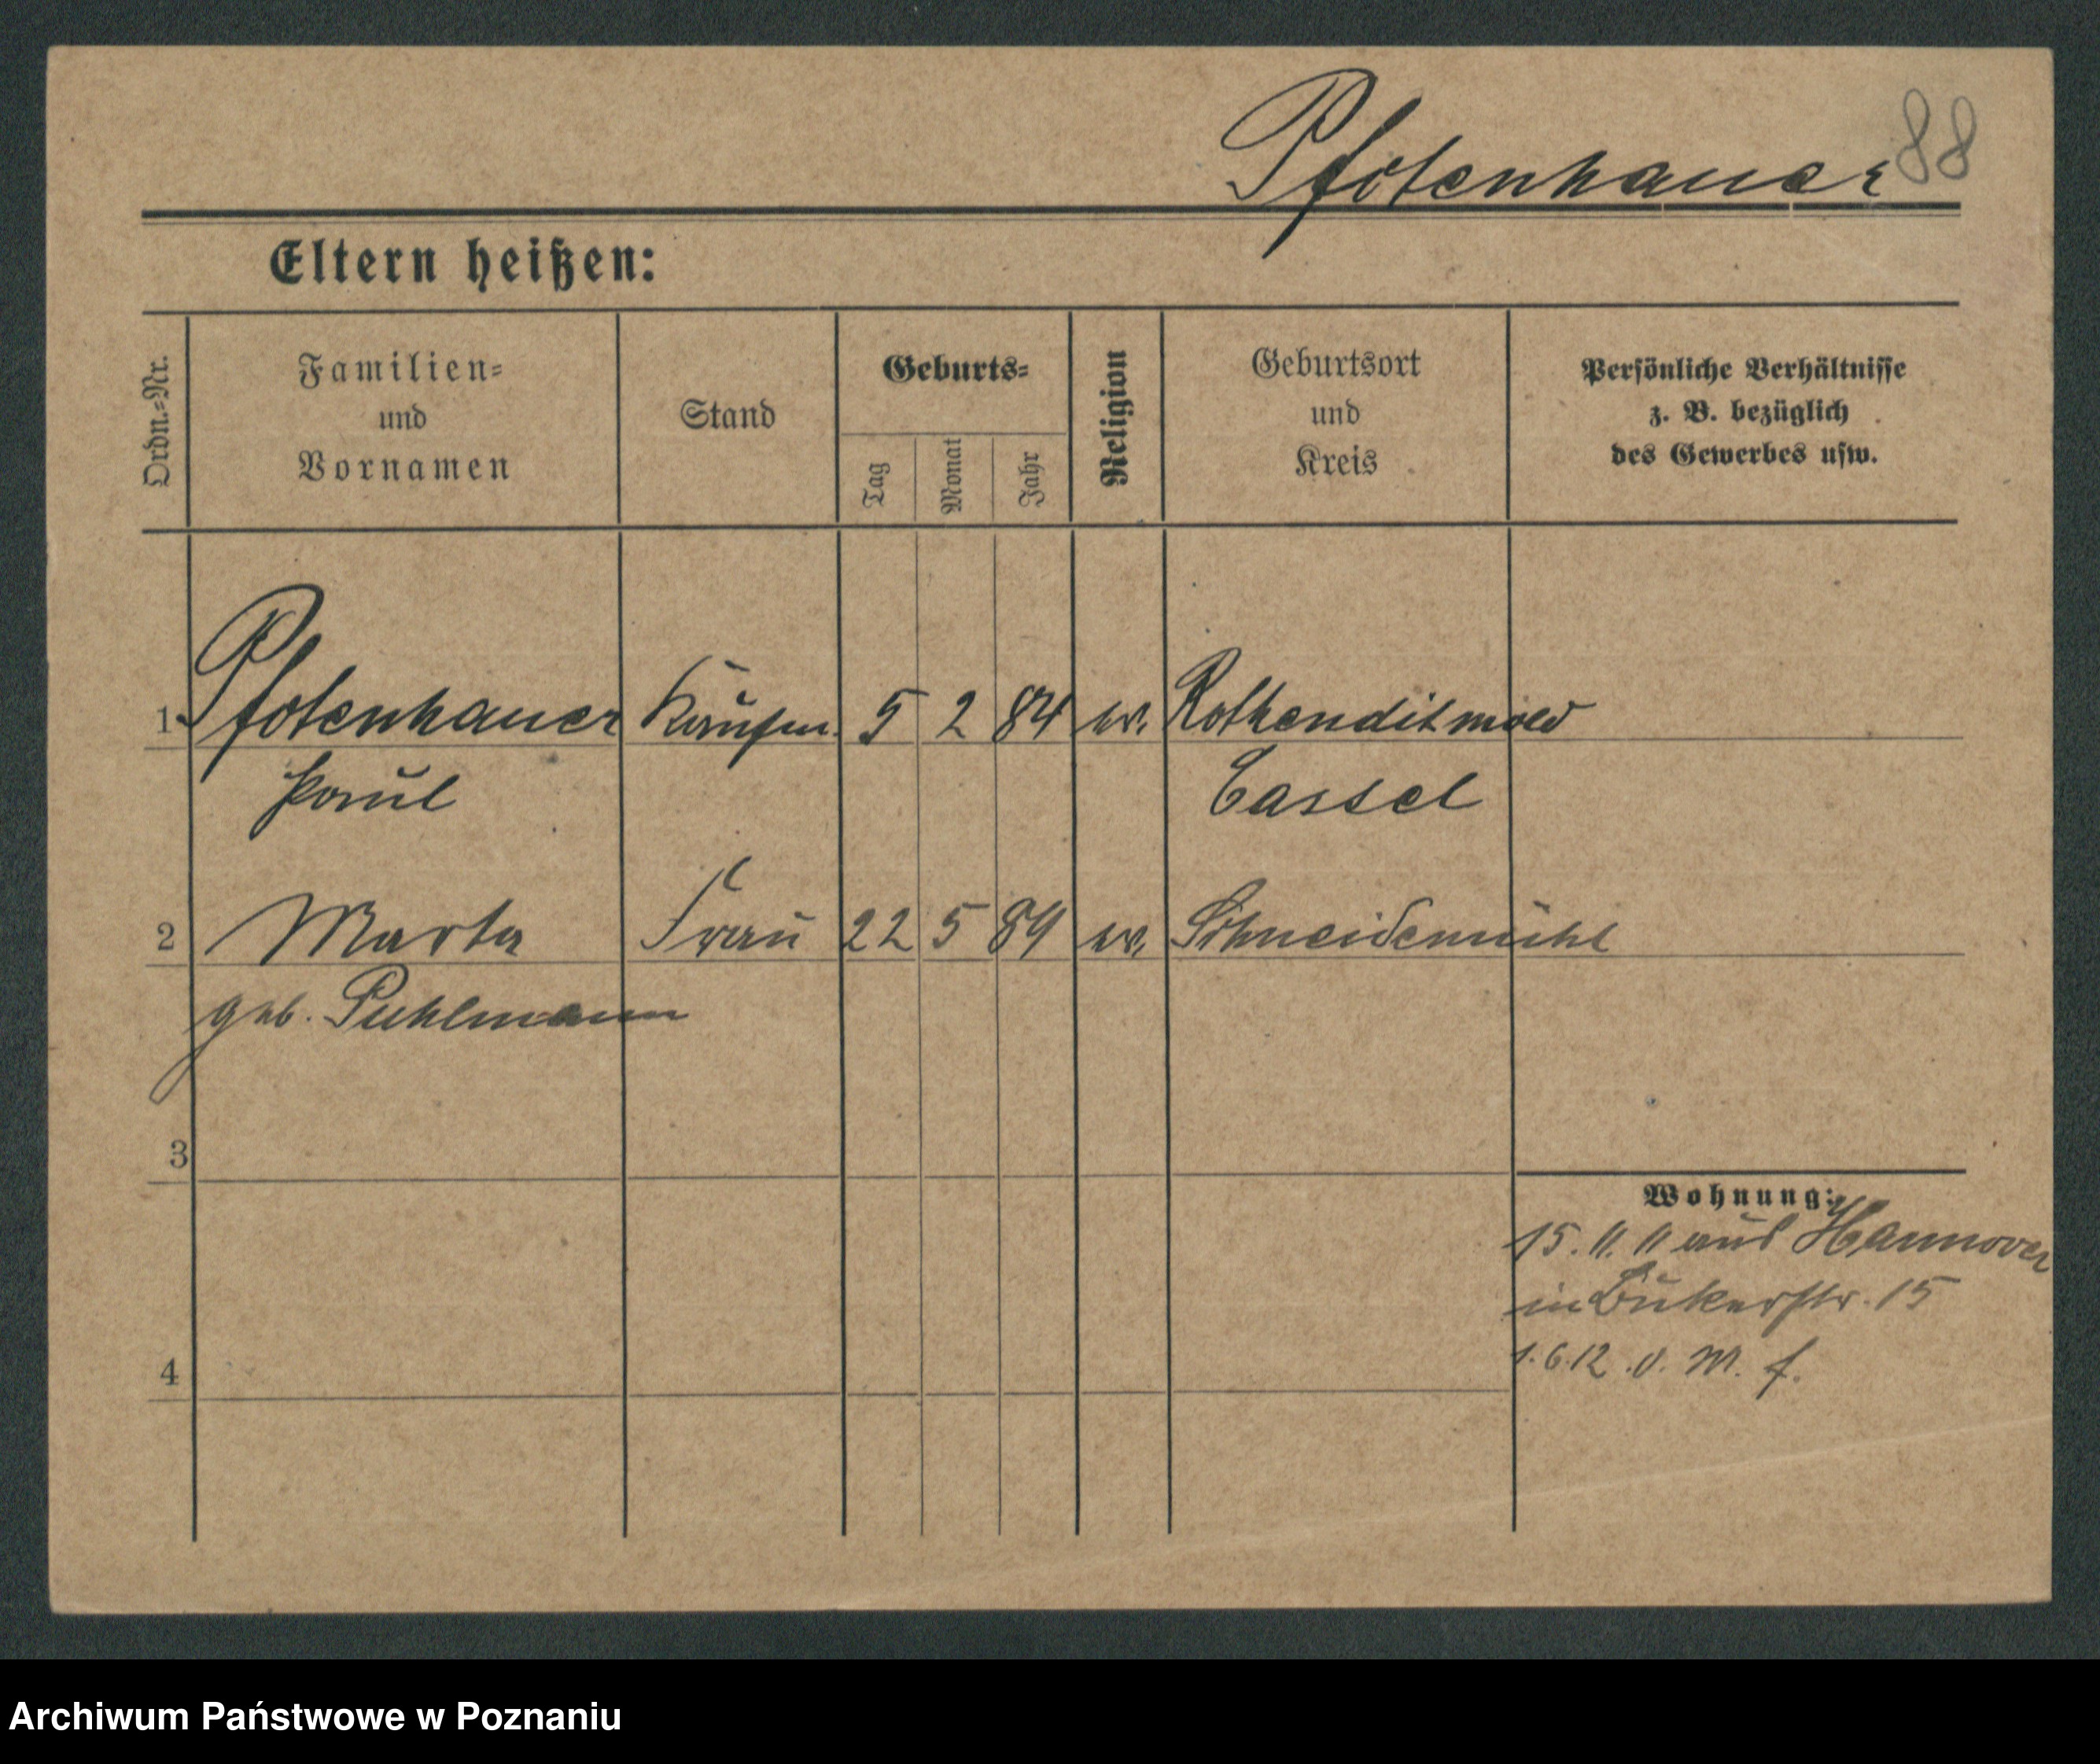 Pfotenhauer 88
Eltern heißen:
Ordn.-Nr.
Familien-
und
Vornamen
Stand
Geburts-
Tag
Monat
Jahr
Religion
Geburtsort
und
Kreis
Persönliche Verhältnisse
z. B. bezüglich
des Gewerbes usw.
1 Pfotenhauer Kaufm. 5 2 84 ev. Rothenditmold
Paul Cassel
2 Marta Frau 22 5 89 ev. Schneidemühl
geb. Puhlmann
3
Wohnung:
15. 11. 11 aus Hannover
in Bukerstr. 15
4
1.6.12. v. M. f.
Archiwum Państwowe w Poznaniu